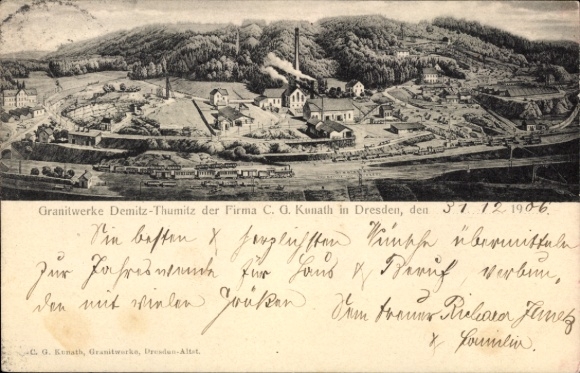 Granitwerke Demitz-Thumitz der Firma C. G. Kunath in Dresden, den 31.12 1906.
Die besten & herzlichsten Wünsche übermitteln
zur Jahreswende für Haus & Beruf, verbun-
den mit vielen Grüßen Dein treuer Richard
& Familie.
C. G. Kunath, Granitwerke, Dresden-Altst.